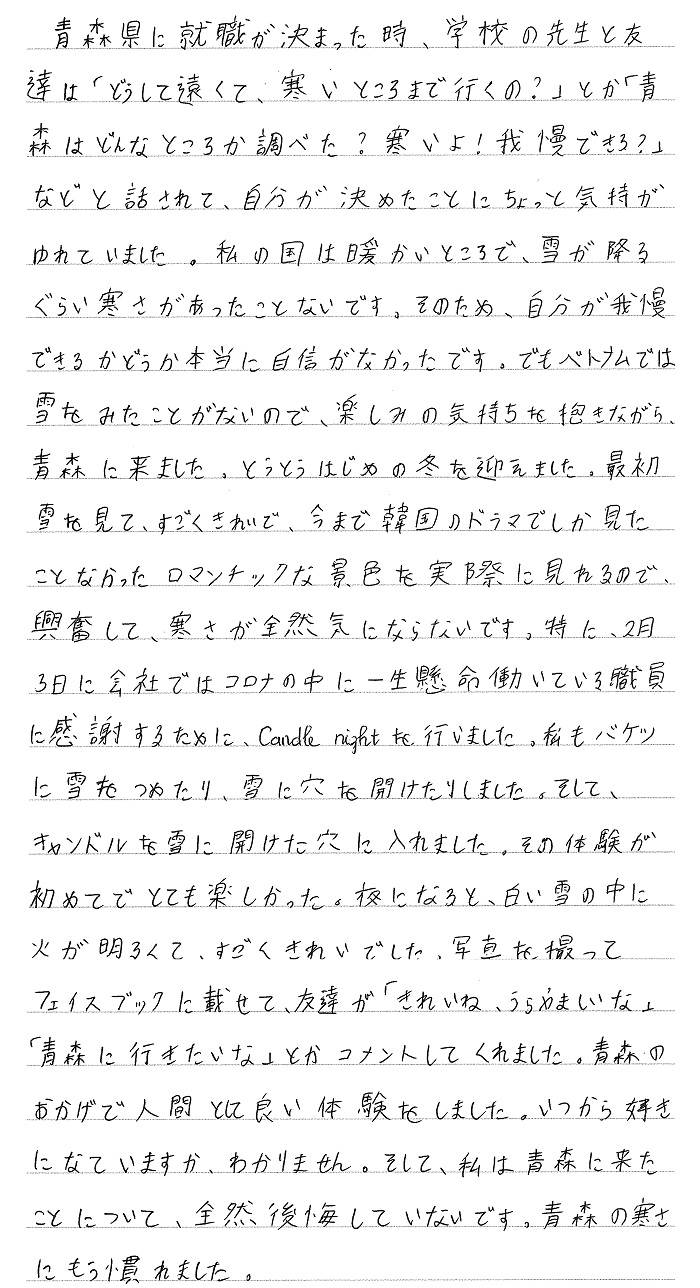 青森県に就職が決まった時、学校の先生と友
達は「どうして遠くて、寒いところまで行くの?」とか「青
森はどんなところか調べた?寒いよ!我慢できる?」
などと話されて、自分が決めたことにちょっと気持が
ゆれていました。私の国は暖かいところで、雪が降る
ぐらい寒さがあったことないです。そのため、自分が我慢
できるかどうか本当に自信がなかったです。でもベトナムでは
雪をみたことがないので、楽しみの気持ちを抱きながら、
青森に来ました。とうとうはじめの冬を迎えました。最初
雪を見て、すごくきれいで、今まで韓国のドラマでしか見た
ことなかったロマンチックな景色を実際に見れるので、
興奮して、寒さが全然気にならないです。特に、2月
3日に会社ではコロナの中に一生懸命働いている職員
に感謝するために、Candle nightを行いました。私もバケツ
に雪をつめたり、雪に穴を開けたりしました。そして、
キャンドルを雪に開けた穴に入れました。その体験が
初めてでとても楽しかった。夜になると、白い雪の中に
火が明るくて、すごくきれいでした、写真を撮って
フェイスブックに載せて、友達が「きれいね、うらやましいな」
「青森に行きたいな」とかコメントしてくれました。青森の
おかげで人間とに良い体験をしました。いつから好き
になていますか、わかりません。そして、私は青森に来た
ことについて、全然後悔していないです。青森の寒さ
にもう慣れました。